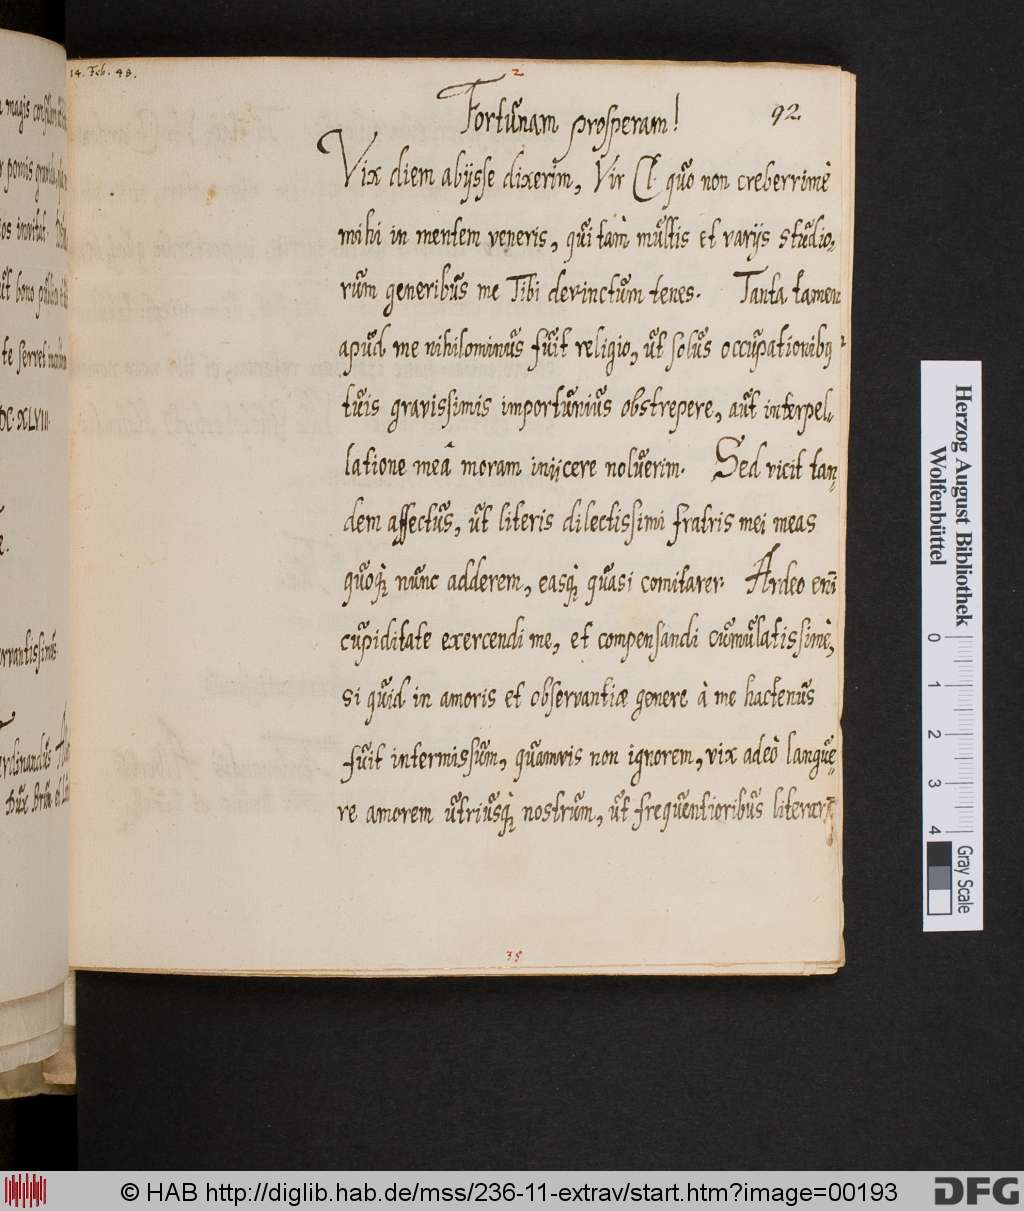 14. Feb. 48.
2
92.
Fortunam prosperam!
Vix diem abijsse dixerim, Vir Cl. quo non creberrimè
mihi in mentem veneris, qui tam multis et varijs studio-
rum generibus me Tibi devinctum tenes. Tanta tamen
apud me nihilominus fuit religio, ut solus occupationibq
tuis gravissimis importunius obstrepere, aut interpel-
latione meâ moram inijcere noluerim. Sed vicit tan-
dem affectus, ut literis dilectissimi fratris mei meas
quoq; nunc adderem, easq; quasi comitarer. Ardeo enī
cupiditate exercendi me, et compensandi cumulatissimè,
si quid in amoris et observantiæ genere à me hactenus
fuit intermissum, quamvis non ignorem, vix adeò langue-
re amorem utriusq; nostrum, ut frequentioribus literarū
35
magis
pomis
ut bono
te servet
XLVIII.
Herzog August Bibliothek
Wolfenbüttel
0 1 2 3 4
Gray Scale
© HAB http://diglib.hab.de/mss/236-11-extrav/start.htm?image=00193
DFG